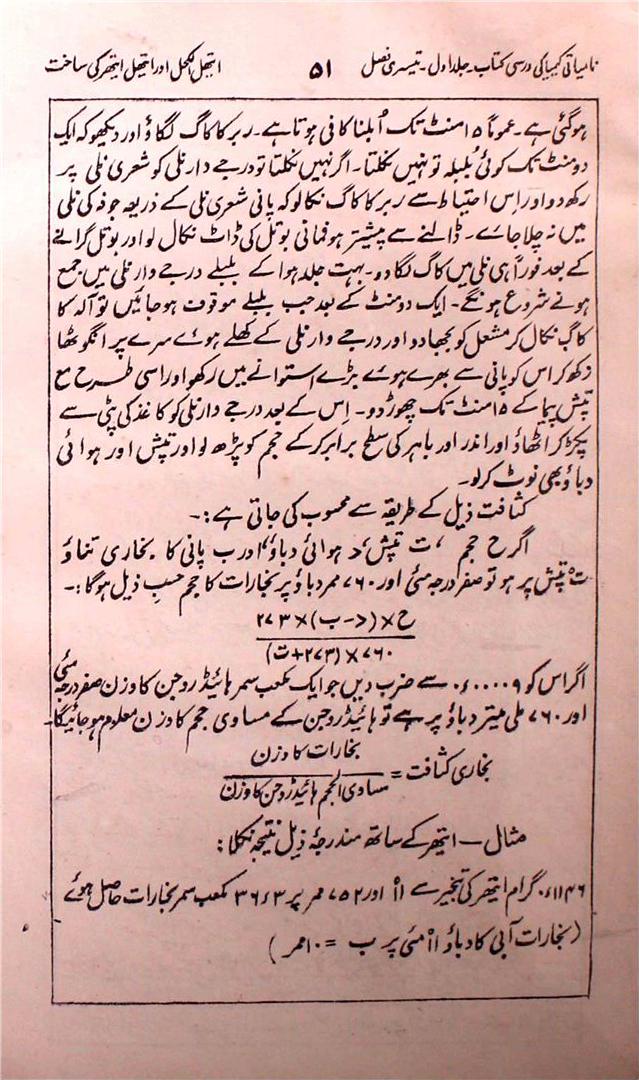 نامیاتی کیمیا کی درسی کتاب ۔ جلد اول ۔ تیسری فصل ۵۱ ایتھل الکحل اور ایتھل ایتھر کی ساخت
ہوگئی ہے ۔ عموماً ۱۵ منٹ تک اُبلنا کافی ہوتا ہے ۔ ربر کا کاگ لگاؤ اور دیکھو کہ ایک
دو منٹ تک کوئی بُلبلہ تو نہیں نکلتا ۔ اگر نہیں نکلتا تو درجے دار نلی کو شعری نلی پر
رکھ دو اور اِس احتیاط سے ربر کا کاگ نکالو کہ پانی شعری نلی کے ذریعہ جوفہ کی نلی
میں نہ چلا جاے ۔ ڈالنے سے پیشتر ہوفمانی بوتل کی ڈاٹ نکال لو اور بوتل گرانے
کے بعد فوراً ہی نلی میں کاگ لگا دو ۔ بہت جلد ہوا کے بلبلے درجے وار نلی میں جمع
ہونے شروع ہونگے ۔ ایک دو منٹ کے بعد جب بلبلے موقوف ہوجائیں تو آلہ کا
کاگ نکال کر مشعل کو بجھا دو اور درجے وار نلی کے کھلے ہوے سرے پر انگوٹھا
رکھ کر اس کو پانی سے بھرے ہوے بڑے استوانے میں رکھو اور اسی طرح مع
تپش پیما کے ۱۵ منٹ تک چھوڑ دو ۔ اِس کے بعد درجے دار نلی کو کاغذ کی پٹی سے
پکڑ کر اٹھاؤ اور اندر اور باہر کی سطح برابر کرکے حجم کو پڑھ لو اور تپش اور ہوائی
دباؤ بھی نوٹ کرلو ۔
کثافت ذیل کے طریقہ سے محسوب کی جاتی ہے :۔
اگر ح حجم ، ت تپش ، د ہوائی دباؤ ، اور ب پانی کا بخاری تناؤ
ت° تپش پر ہو تو صفر درجہ مئی اور ۷۶۰ ممر دباؤ پر بخارات کا حجم حسبِ ذیل ہوگا :۔
ح × (د - ب) × ۲۷۳
۷۶۰ × (۲۷۳ + ت)
اگر اس کو ۰۰۰۰۹ء۰ سے ضرب دیں جو ایک مکعب سمر ہائیڈروجن کا وزن صفر درجہ مئی
اور ۷۶۰ ملی میتر دباؤ پر ہے تو ہائیڈروجن کے مساوی حجم کا وزن معلوم ہوجائیگا۔
بخارات کا وزن
بخاری کثافت =
مساوی الحجم ہائیڈروجن کا وزن
مثال ــ ایتھر کے ساتھ مندرجۂ ذیل نتیجہ نکلا :
۱۱۴۶ء۰ گرام ایتھر کی تبخیر سے ۱۱° اور ۷۵۲ ممر پر ۳ء۳۶ مکعب سمر بخارات حاصل ہوئے
( بخارات آبی کا دباؤ ۱۱° مئی پر ب = ۱۰ ممر )